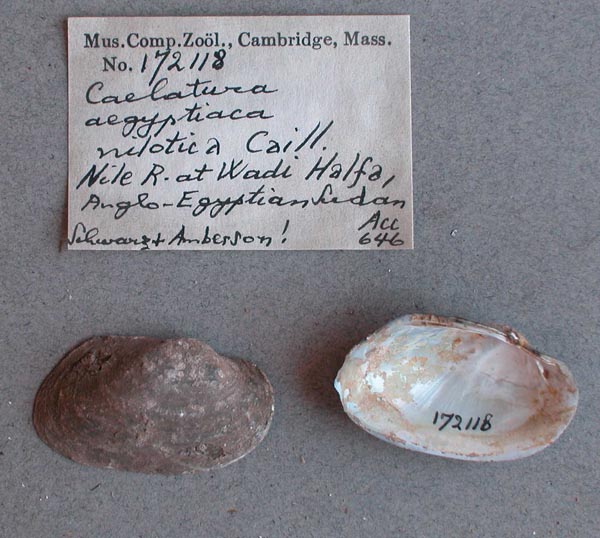 Mus.Comp.Zoöl., Cambridge, Mass.
No. 172118
Caelatura
aegyptiaca
nilotica Caill.
Nile R. at Wadi Halfa,
Anglo-Egyptian Sudan
Schwarz + Amberson!
Acc
646
172118